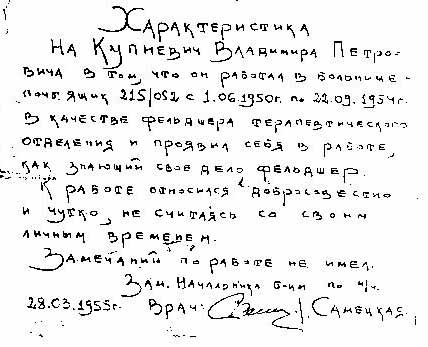 Характеристика
На Купцевич Владимира Петро-
вича в том, что он работал в больнице -
почт. ящик 215/052 с 1.06.1950г. по 22.09.1954г.
в качестве фельдшера терапевтического
отделения и проявил себя в работе,
как знающий свое дело фельдшер.
К работе относился добросовестно
и чутко, не считаясь со своим
личным временем.
Замечаний по работе не имел.
Зам. Начальника б-цы по м/ч.
28.03.1955г. Врач: Самецкая.